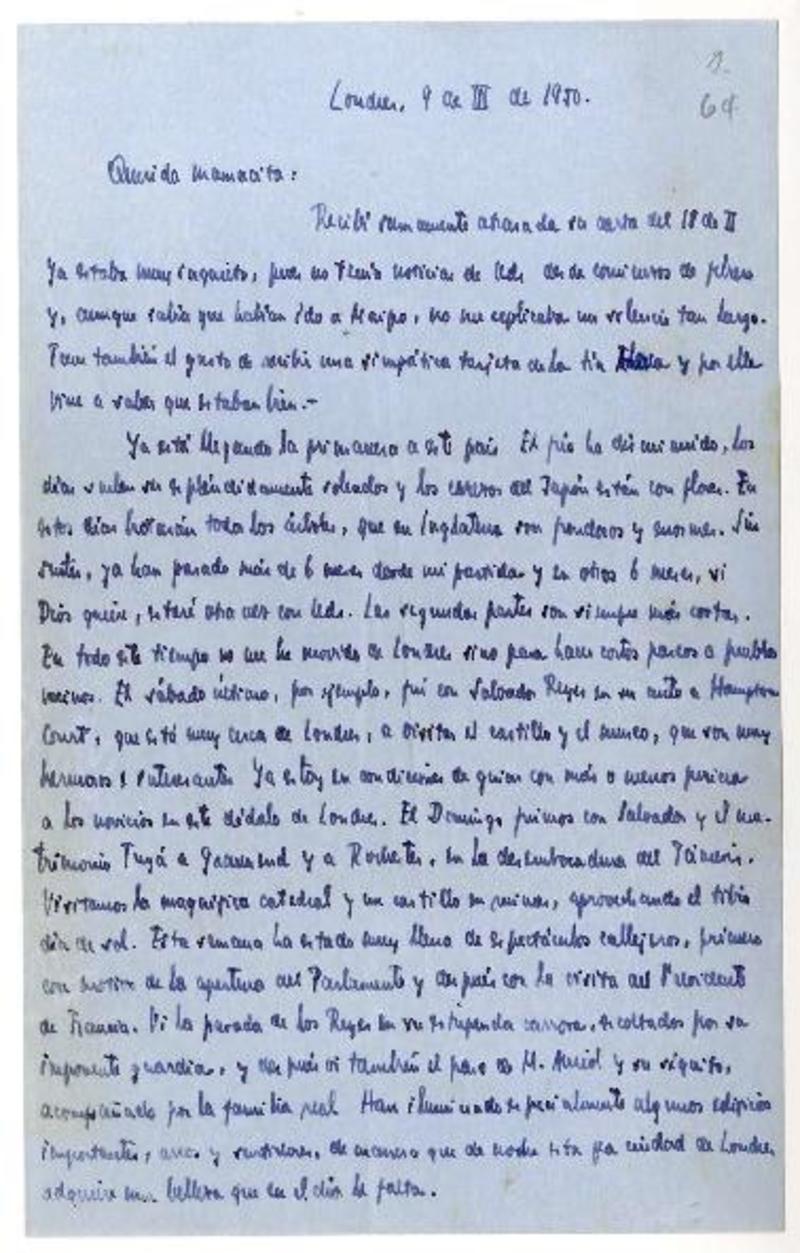 9.
64
Londres, 9 de III de 1950.
Querida mamacita:
Recibí sumamente atrasada su carta del 18 de II
Ya estaba muy inquieto, pues no tenía noticias de Uds desde comienzos de febrero
y, aunque sabía que habían ido a Maipo, no me explicaba un silencio tan largo.
Tuve también el gusto de recibir una simpática tarjeta de la tía y por ella
vine a saber que estaban bien.-
Ya está llegando la primavera a este país El frío ha disminuido, los
días suelen ser espléndidamente soleados y los cerezos del Japón están con flores. En
estos días brotarán todos los árboles, que en Inglaterra son frondosos y enormes. Sin
sentir, ya han pasado más de 6 meses desde mi partida y en otros 6 meses, si
Dios quiere, estaré otra vez con Uds. Las segundas partes son siempre más cortas.
En todo este tiempo no me he movido de Londres sino para hacer cortos paseos a pueblos
vecinos. El sábado último, por ejemplo, fuí con Salvador Reyes en su auto a Hampton
Court, que está muy cerca de Londres, a visitar el castillo y el museo, que son muy
hermosos e interesantes Ya estoy en condiciones de guiar con más o menos pericia
a los novicios en este dédalo de Londres. El Domingo fuimos con Salvador y el ma-
trimonio a Gravesend y a Rochester, en la desembocadura del Támesis.
Visitamos la magnífica catedral y un castillo en ruinas, aprovechando el tibio
día de sol. Esta semana ha estado muy llena de espectáculos callejeros, primero
con motivo de la apertura del Parlamento y después con la visita del Presidente
de Francia. Vi la parada de los Reyes en su estupenda carroza, escoltados por su
imponente guardia, y después vi también el paso de M. Auriol y su séquito,
acompañado por la familia real Han iluminado especialmente algunos edificios
importantes, arcos y, de manera que de noche esta fea ciudad de Londres
adquiere una belleza que en el día le falta.